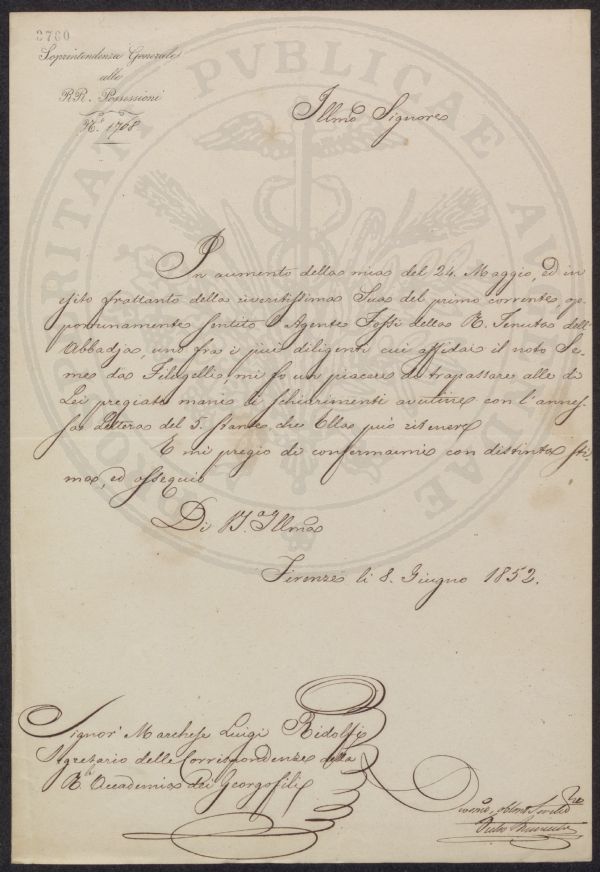 3760
Soprintendenza Generale
alle
RR. Possessioni
N.° 1768
Illmo Signore
In aumento della mia del 24. Maggio, ed in
esito frattanto della riveritissima Sua del primo corrente, op=
portunamente sentito l'Agente Fossi della R. Tenuta dell'
Abbadja, uno fra i più diligenti cui affidai il noto Se=
me da Filugelli, mi fo un piacere di trapassare alle di
Lei pregiate mani li schiarimenti avutine con l'annes=
sa Lettera del 5. stante, che Ella può ritenere
E mi pregio di confermarmi con distinta sti=
ma, ed ossequio
Di V.a Illma
Firenze li 8. Giugno 1852.
Signor Marchese Luigi Ridolfi
Segretario delle Corrispondenze della
R. Accademia dei Georgofili
PUBLICAE